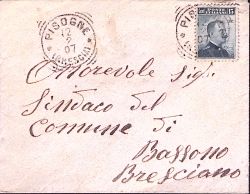 PISOGNE
12
2
07
(BRESCIA)
PISOG
07
15
Onorevole Sigr
Sindaco del
Comune di
Bassono
Bresciano